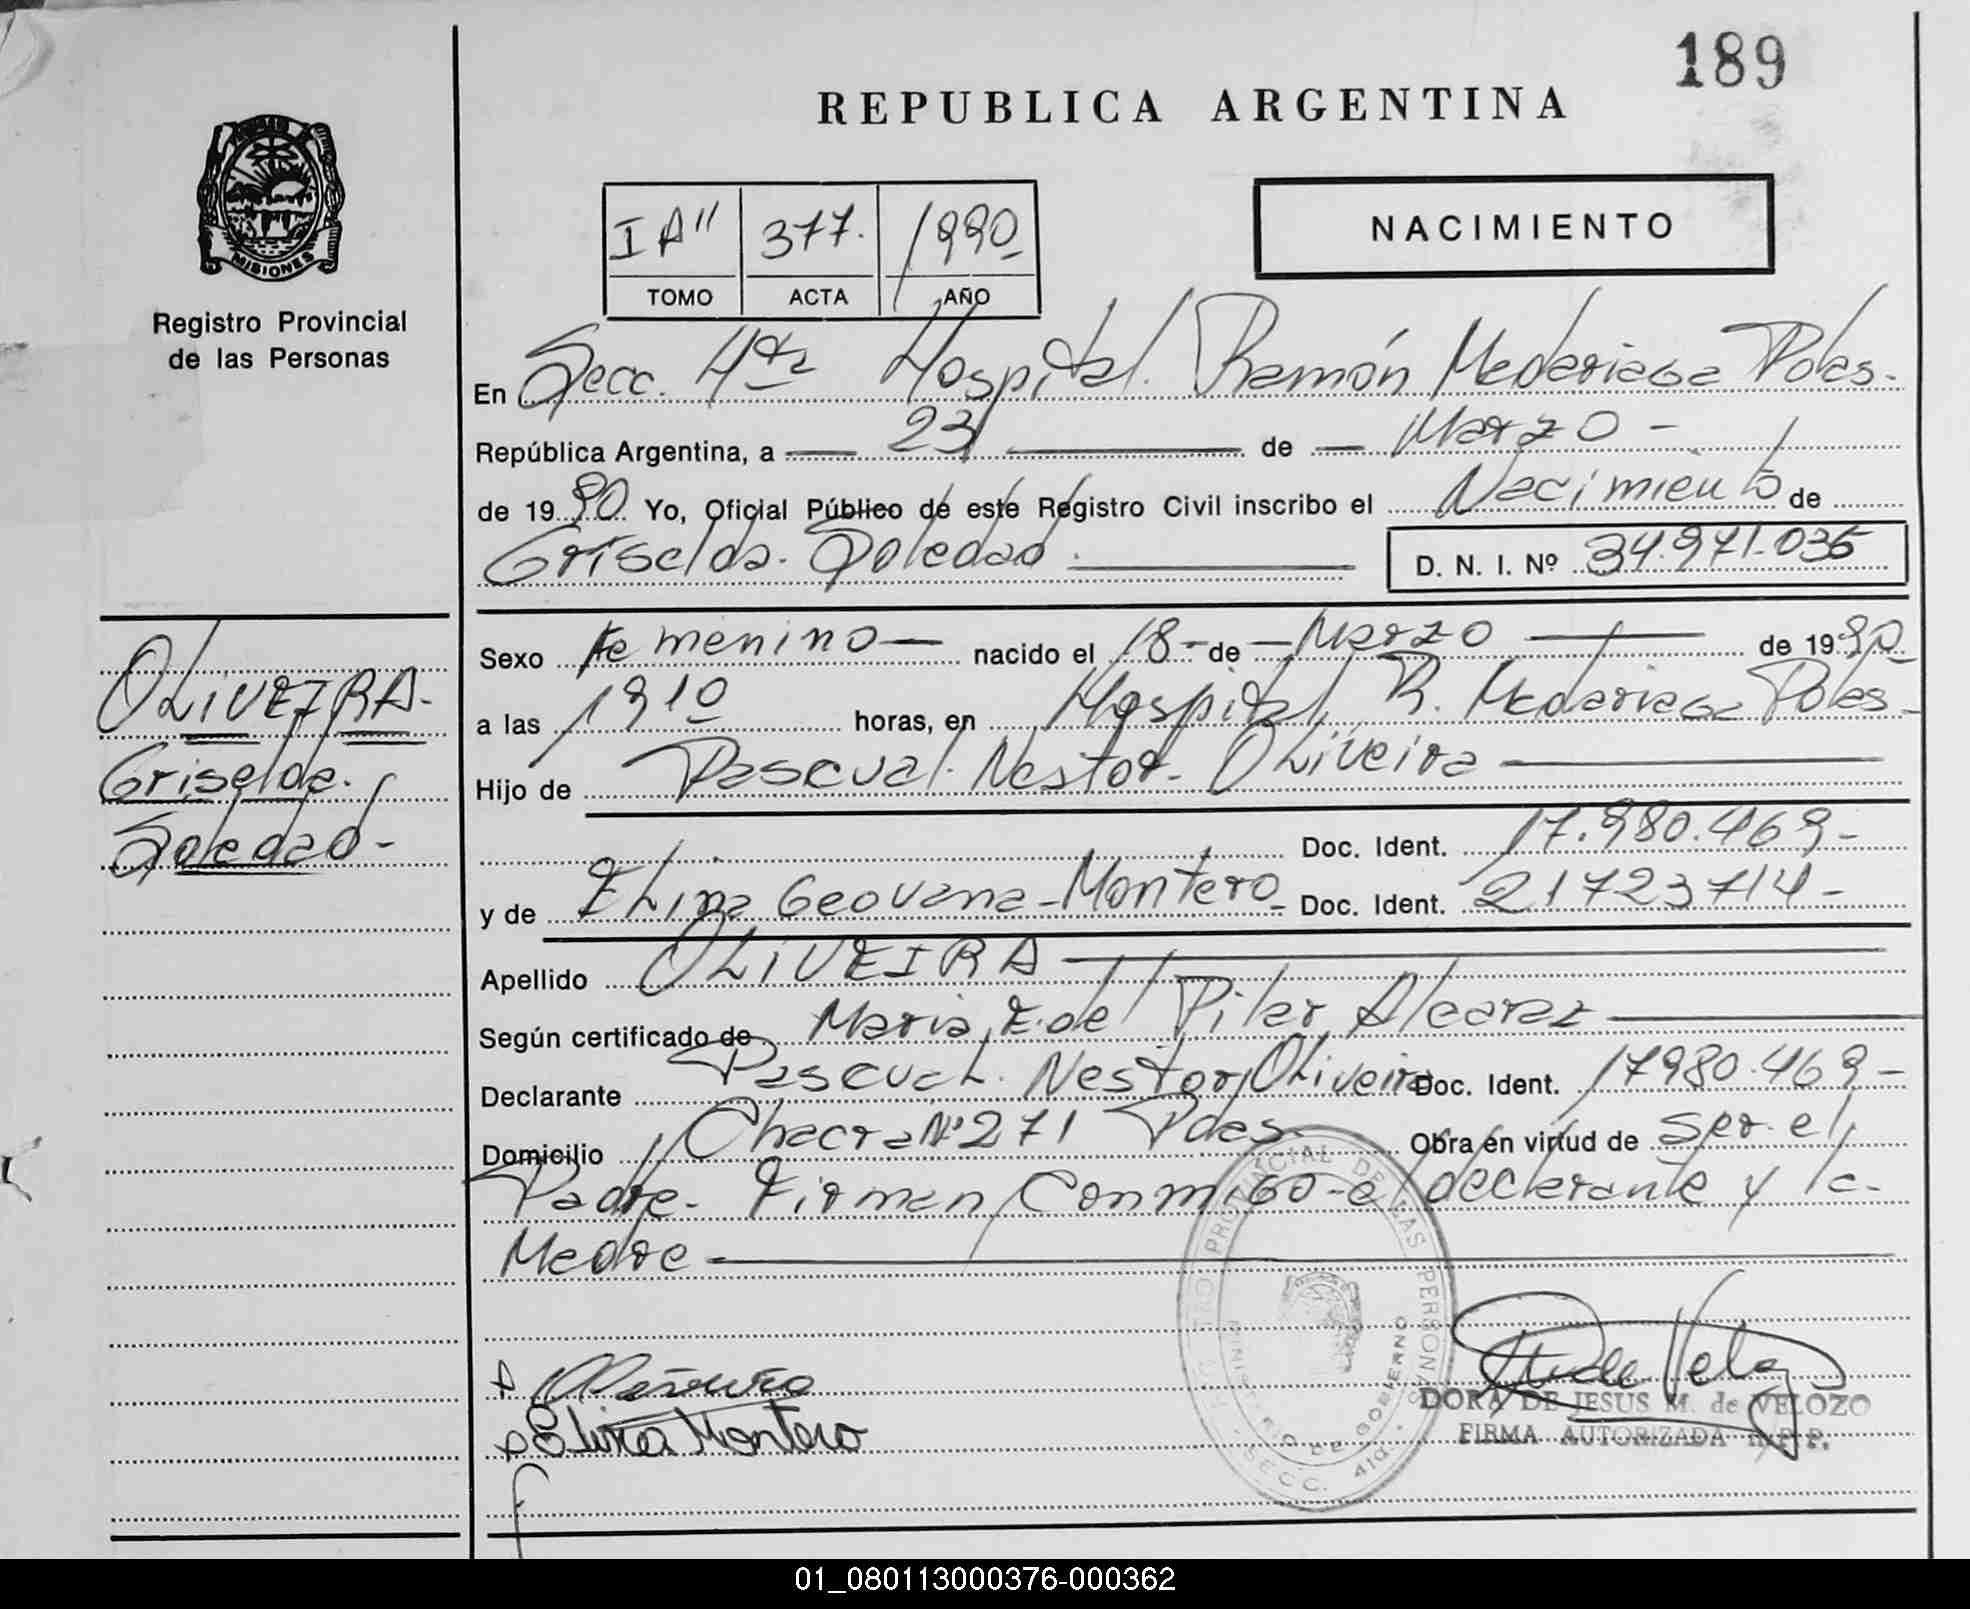 189
REPUBLICA ARGENTINA
MISIONES
Registro Provincial
de las Personas
I A" 377. 1990
TOMO ACTA AÑO
NACIMIENTO
En Secc. 4ta Hospital. Ramón Madariaga Pdas.
República Argentina, a 23 de Marzo -
de 1990 Yo, Oficial Público de este Registro Civil inscribo el Nacimiento de
Griselda. Soledad.
D. N. I. Nº 34.971.036
OLIVEIRA.
Griselda.
Soledad-
Sexo femenino nacido el 18- de Marzo de 1990
a las 1910 horas, en Hospital R. Madariaga Pdas-
Hijo de Pascual. Nestor. Oliveira
Doc. Ident. 17.980.469-
y de Elina Geovana-Montero- Doc. Ident. 21723714-
Apellido OLIVEIRA
Según certificado de Maria E. del Pilar Alcaraz
Declarante Pascual. Nestor Oliveira Doc. Ident. 17980.469-
Domicilio Chacra Nº 271 Pdas- Obra en virtud de ser. el
Padre- Firman Conmigo-el declarante y la-
Madre
REGISTRO PROVINCIAL DE LAS PERSONAS
MINISTERIO DE GOBIERNO
SECC. 4ta.
Elina Montero
DORA DE JESUS M. de VELOZO
FIRMA AUTORIZADA R.P.P.
01_080113000376-000362